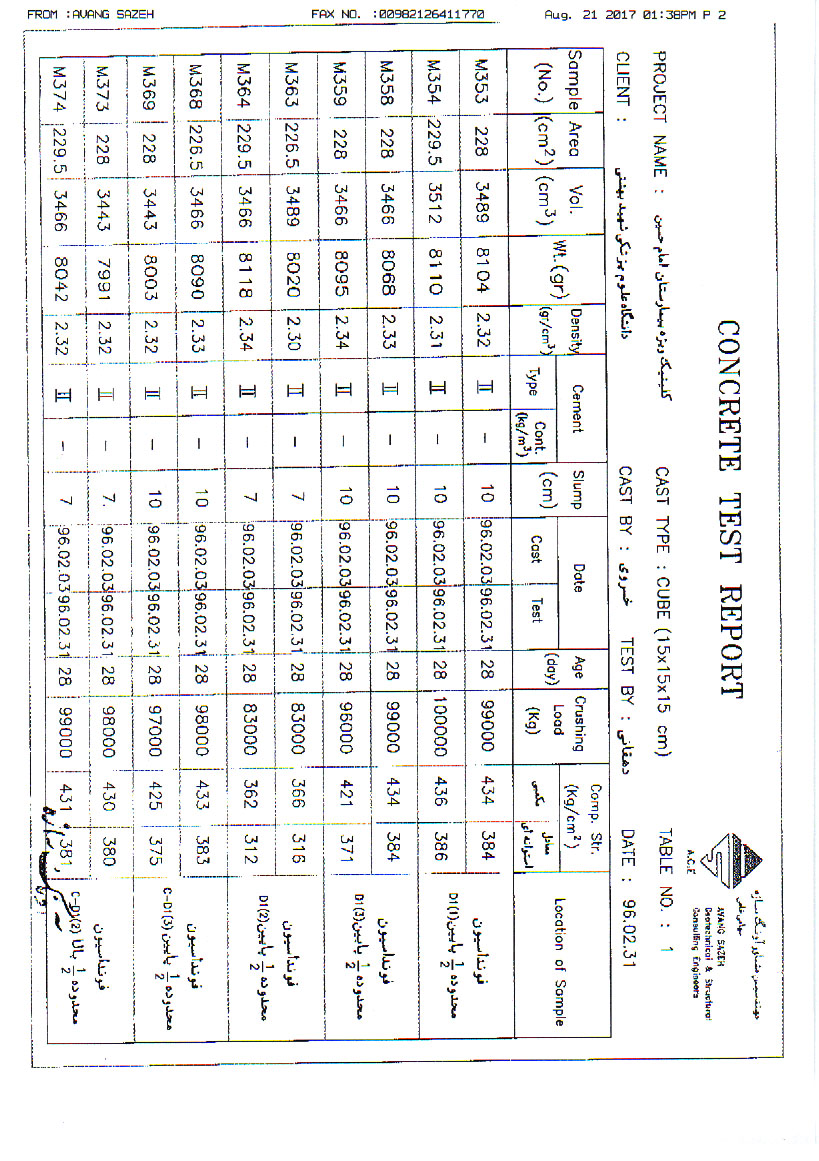 FROM :AVANG SAZEH FAX NO. :00982126411770 Aug. 21 2017 01:38PM P 2
CONCRETE TEST REPORT
مهندسین مشاور آونگ سازه
AVANG SAZEH
Geotechnical & Structural
Consulting Engineers
A.C.E
PROJECT NAME : کلینیک ویژه بیمارستان امام حسین CAST TYPE : CUBE (15x15x15 cm) TABLE NO. : 1
CLIENT : دانشگاه علوم پزشکی شهید بهشتی CAST BY : خسروی TEST BY : دهقانی DATE : 96.02.31
Sample (No.) Area (cm2) Vol. (cm3) Wt.(gr) Density (gr/cm3) Cement Type Cont. (kg/m3) Slump (cm) Date Cast Test Age (day) Crushing Load (Kg) Comp. Str. (Kg/cm2) مکعبی معادل استوانه ای Location of Sample
M353 228 3489 8104 2.32 II – 10 96.02.03 96.02.31 28 99000 434 384 فونداسیون
M354 229.5 3512 8110 2.31 II – 10 96.02.03 96.02.31 28 100000 436 386 محدوده 1/2 پایین D1(1)
M358 228 3466 8068 2.33 II – 10 96.02.03 96.02.31 28 99000 434 384 فونداسیون
M359 228 3466 8095 2.34 II – 10 96.02.03 96.02.31 28 96000 421 371 محدوده 1/2 پایین D1(3)
M363 226.5 3489 8020 2.30 II – 7 96.02.03 96.02.31 28 83000 366 316 فونداسیون
M364 229.5 3466 8118 2.34 II – 7 96.02.03 96.02.31 28 83000 362 312 محدوده 1/2 پایین D1(2)
M368 226.5 3466 8090 2.33 II – 10 96.02.03 96.02.31 28 98000 433 383 فونداسیون
M369 228 3443 8003 2.32 II – 10 96.02.03 96.02.31 28 97000 425 375 محدوده 1/2 پایین C-D1(3)
M373 228 3443 7991 2.32 II – 7. 96.02.03 96.02.31 28 98000 430 380 فونداسیون
M374 229.5 3466 8042 2.32 II – 7 96.02.03 96.02.31 28 99000 431 381 محدوده 1/2 بالا C-D1(2)